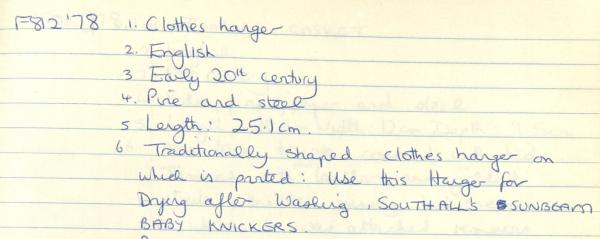 F812 '78 1. Clothes hanger
2. English
3 Early 20th century
4. Pine and steel
5 Length: 25.1cm.
6 Traditionally shaped clothes hanger on
which is printed: Use this Hanger for
Drying after Washing, SOUTHALL'S SUNBEAM
BABY KNICKERS.